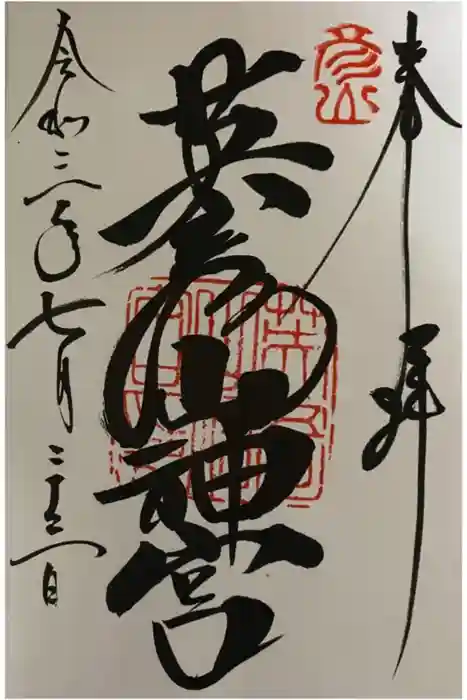 奉拝
彦山
英彦山神宮
令和三年七月二十 日